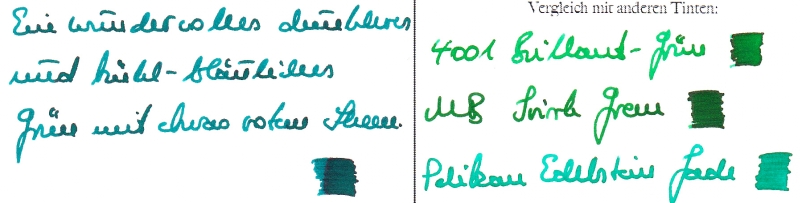 Ein wundervolles dunkleres
und kühl-bläuliches
Grün mit etwas rotem Sheen.
Vergleich mit anderen Tinten:
4001 Brillant-Grün
MB Irish Green
Pelikan Edelstein Jade